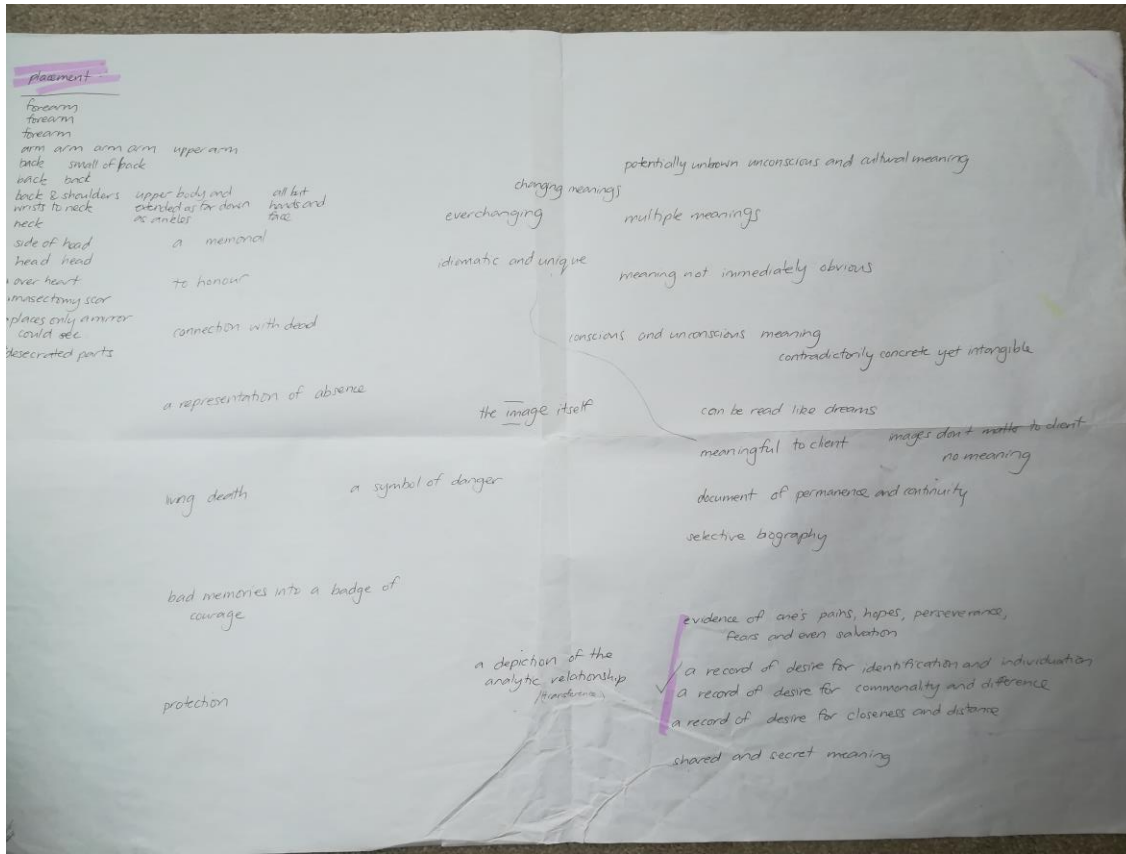 placement
forearm
forearm
forearm
arm arm arm arm upper arm
back small of back
back back
back & shoulders upper body and all but
wrists to neck extended as far down hands and
neck as ankles face
side of head
head head
over heart
masectomy scar
places only a mirror
could see
desecrated parts
a memorial
to honour
connection with dead
a representation of absence
living death
a symbol of danger
bad memories into a badge of
courage
protection
changing meanings
everchanging
idiomatic and unique
the image itself
a depiction of the
analytic relationship
/transference
potentially unknown unconscious and cultural meaning
multiple meanings
meaning not immediately obvious
conscious and unconscious meaning
contradictorily concrete yet intangible
can be read like dreams
meaningful to client images don't matter to client
no meaning
document of permanence and continuity
selective biography
evidence of one's pains, hopes, perseverance,
fears and even salvation
a record of desire for identification and individuation
a record of desire for commonality and difference
a record of desire for closeness and distance
shared and secret meaning